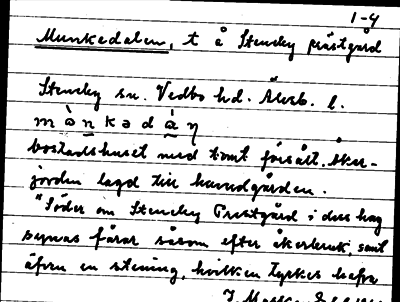 1-4
Munkedalen, t å Steneby prästgård
Steneby sn. Vedbo hd. Älvsb. l.
m ò̱ n k ə d à̱ ŋ
bostadshuset med tomt försålt. Åker-
jorden lagd till huvudgården.
"Söder om Steneby Prestgård i dess hag
synas fåror såsom efter åkerbruk, samt
äfven en stening, hvilken tyckes hafva